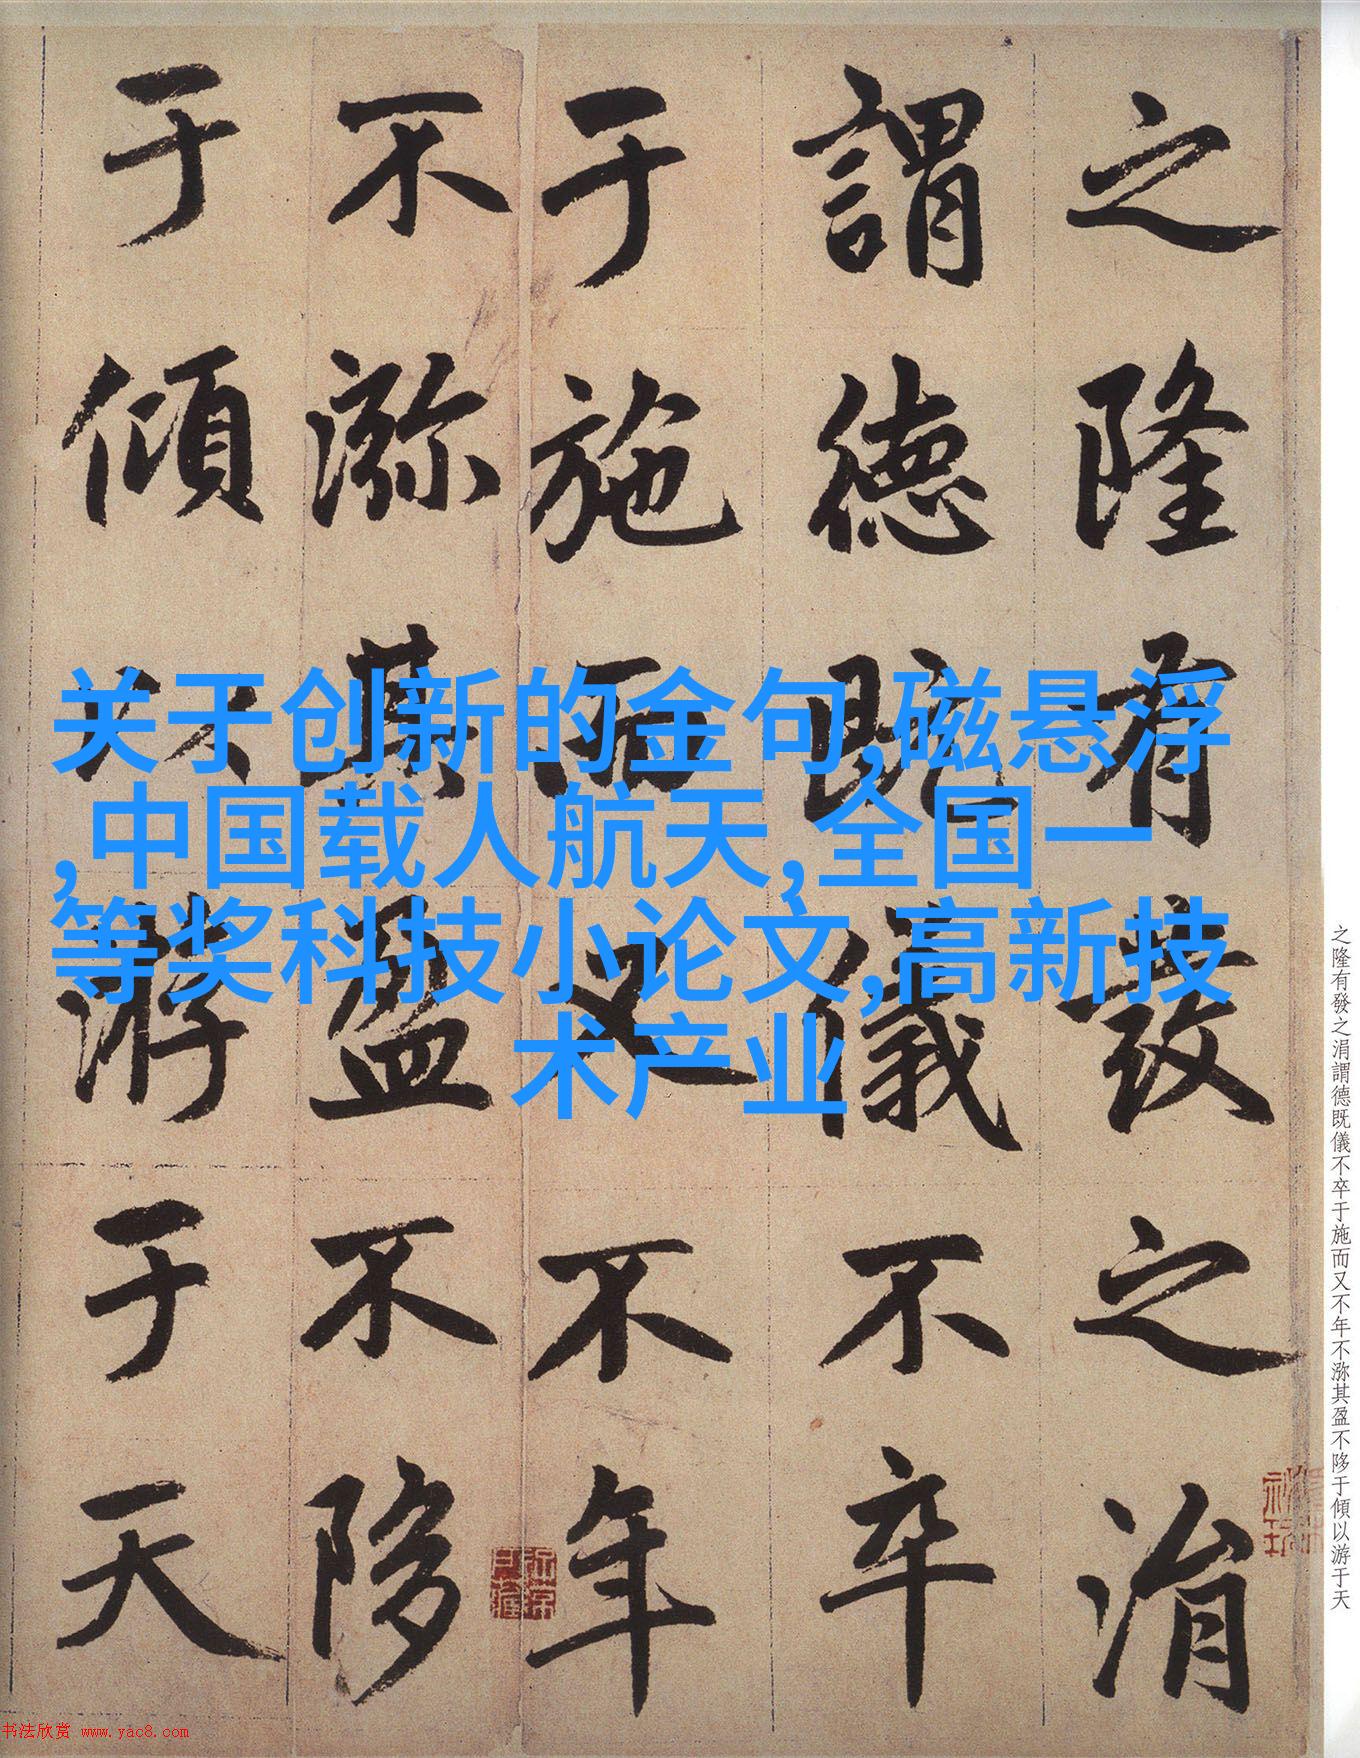 之隆有發之涓
謂德既儀不卒
于施而又不年
不㳽其盈不陊
于傾以游于天
关于创新的金句,磁悬浮
,中国载人航天,全国一
等奖科技小论文,高新技
术产业
之隆有發之涓謂德既儀不卒于施而又不年不㳽其盈不陊于傾以游于天
书法欣赏 www.yac8.com